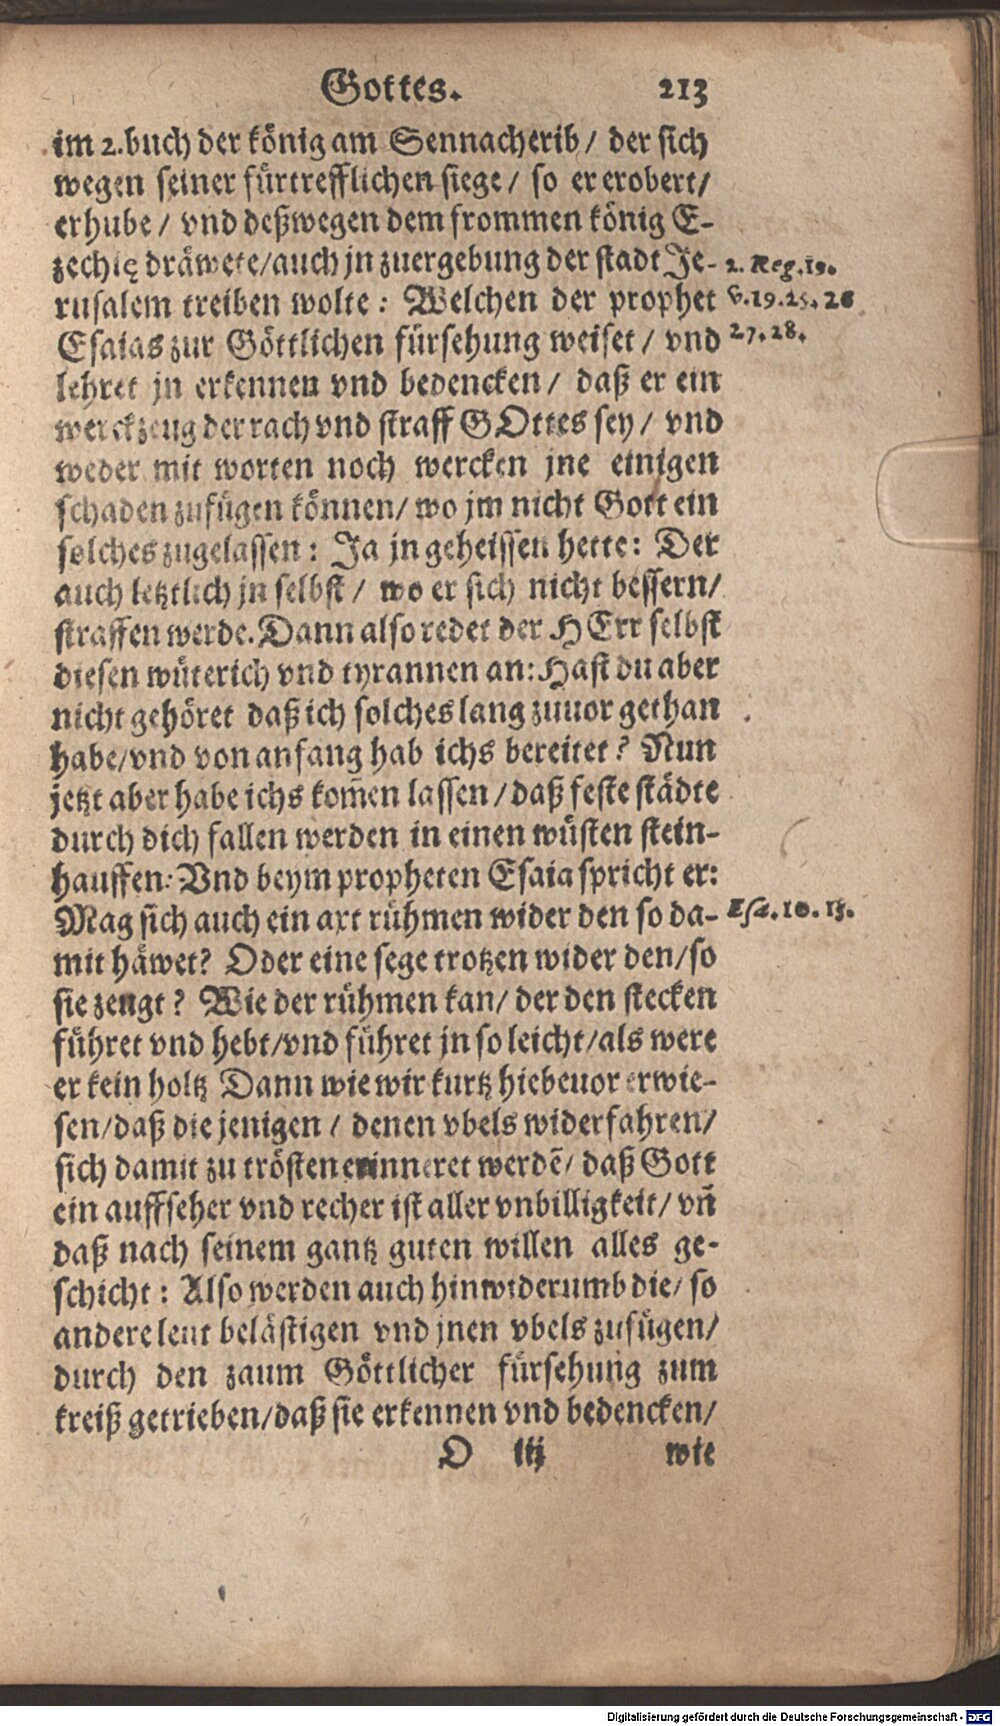 Gottes. 213
im 2. buch der könig am Sennacherib / der sich
wegen seiner fürtrefflichen siege / so er erobert /
erhube / vnd deßwegen dem frommen könig E-
zechię dräwete / auch jn zuergebung der stadt Je-
2. Reg. 19.
rusalem treiben wolte : Welchen der prophet
v. 19. 25. 26
Esaias zur Göttlichen fürsehung weiset / vnd
27. 28.
lehret jn erkennen vnd bedencken / daß er ein
werckzeug der rach vnd straff GOttes sey / vnd
weder mit worten noch wercken jne einigen
schaden zufügen können / wo jm nicht Gott ein
solches zugelassen : Ja jn geheissen hette : Der
auch letztlich jn selbst / wo er sich nicht bessern /
straffen werde. Dann also redet der HErr selbst
diesen wüterich vnd tyrannen an: Hast du aber
nicht gehöret daß ich solches lang zuuor gethan
habe / vnd von anfang hab ichs bereitet ? Nun
jetzt aber habe ichs kom̃en lassen / daß feste städte
durch dich fallen werden in einen wüsten stein-
hauffen: Vnd beym propheten Esaia spricht er:
Mag sich auch ein axt rühmen wider den so da-
Esa. 10. 15.
mit häwet? Oder eine sege trotzen wider den / so
sie zeugt ? Wie der rühmen kan / der den stecken
führet vnd hebt / vnd führet jn so leicht / als were
er kein holtz Dann wie wir kurtz hiebeuor erwie-
sen / daß die jenigen / denen vbels widerfahren /
sich damit zu trösten erinneret werdẽ / daß Gott
ein auffseher vnd recher ist aller vnbilligkeit / vñ
daß nach seinem gantz guten willen alles ge-
schicht : Also werden auch hinwiderumb die / so
andere leut belästigen vnd jnen vbels zufügen /
durch den zaum Göttlicher fürsehung zum
kreiß getrieben / daß sie erkennen vnd bedencken /
O iij wie
Digitalisierung gefördert durch die Deutsche Forschungsgemeinschaft - DFG